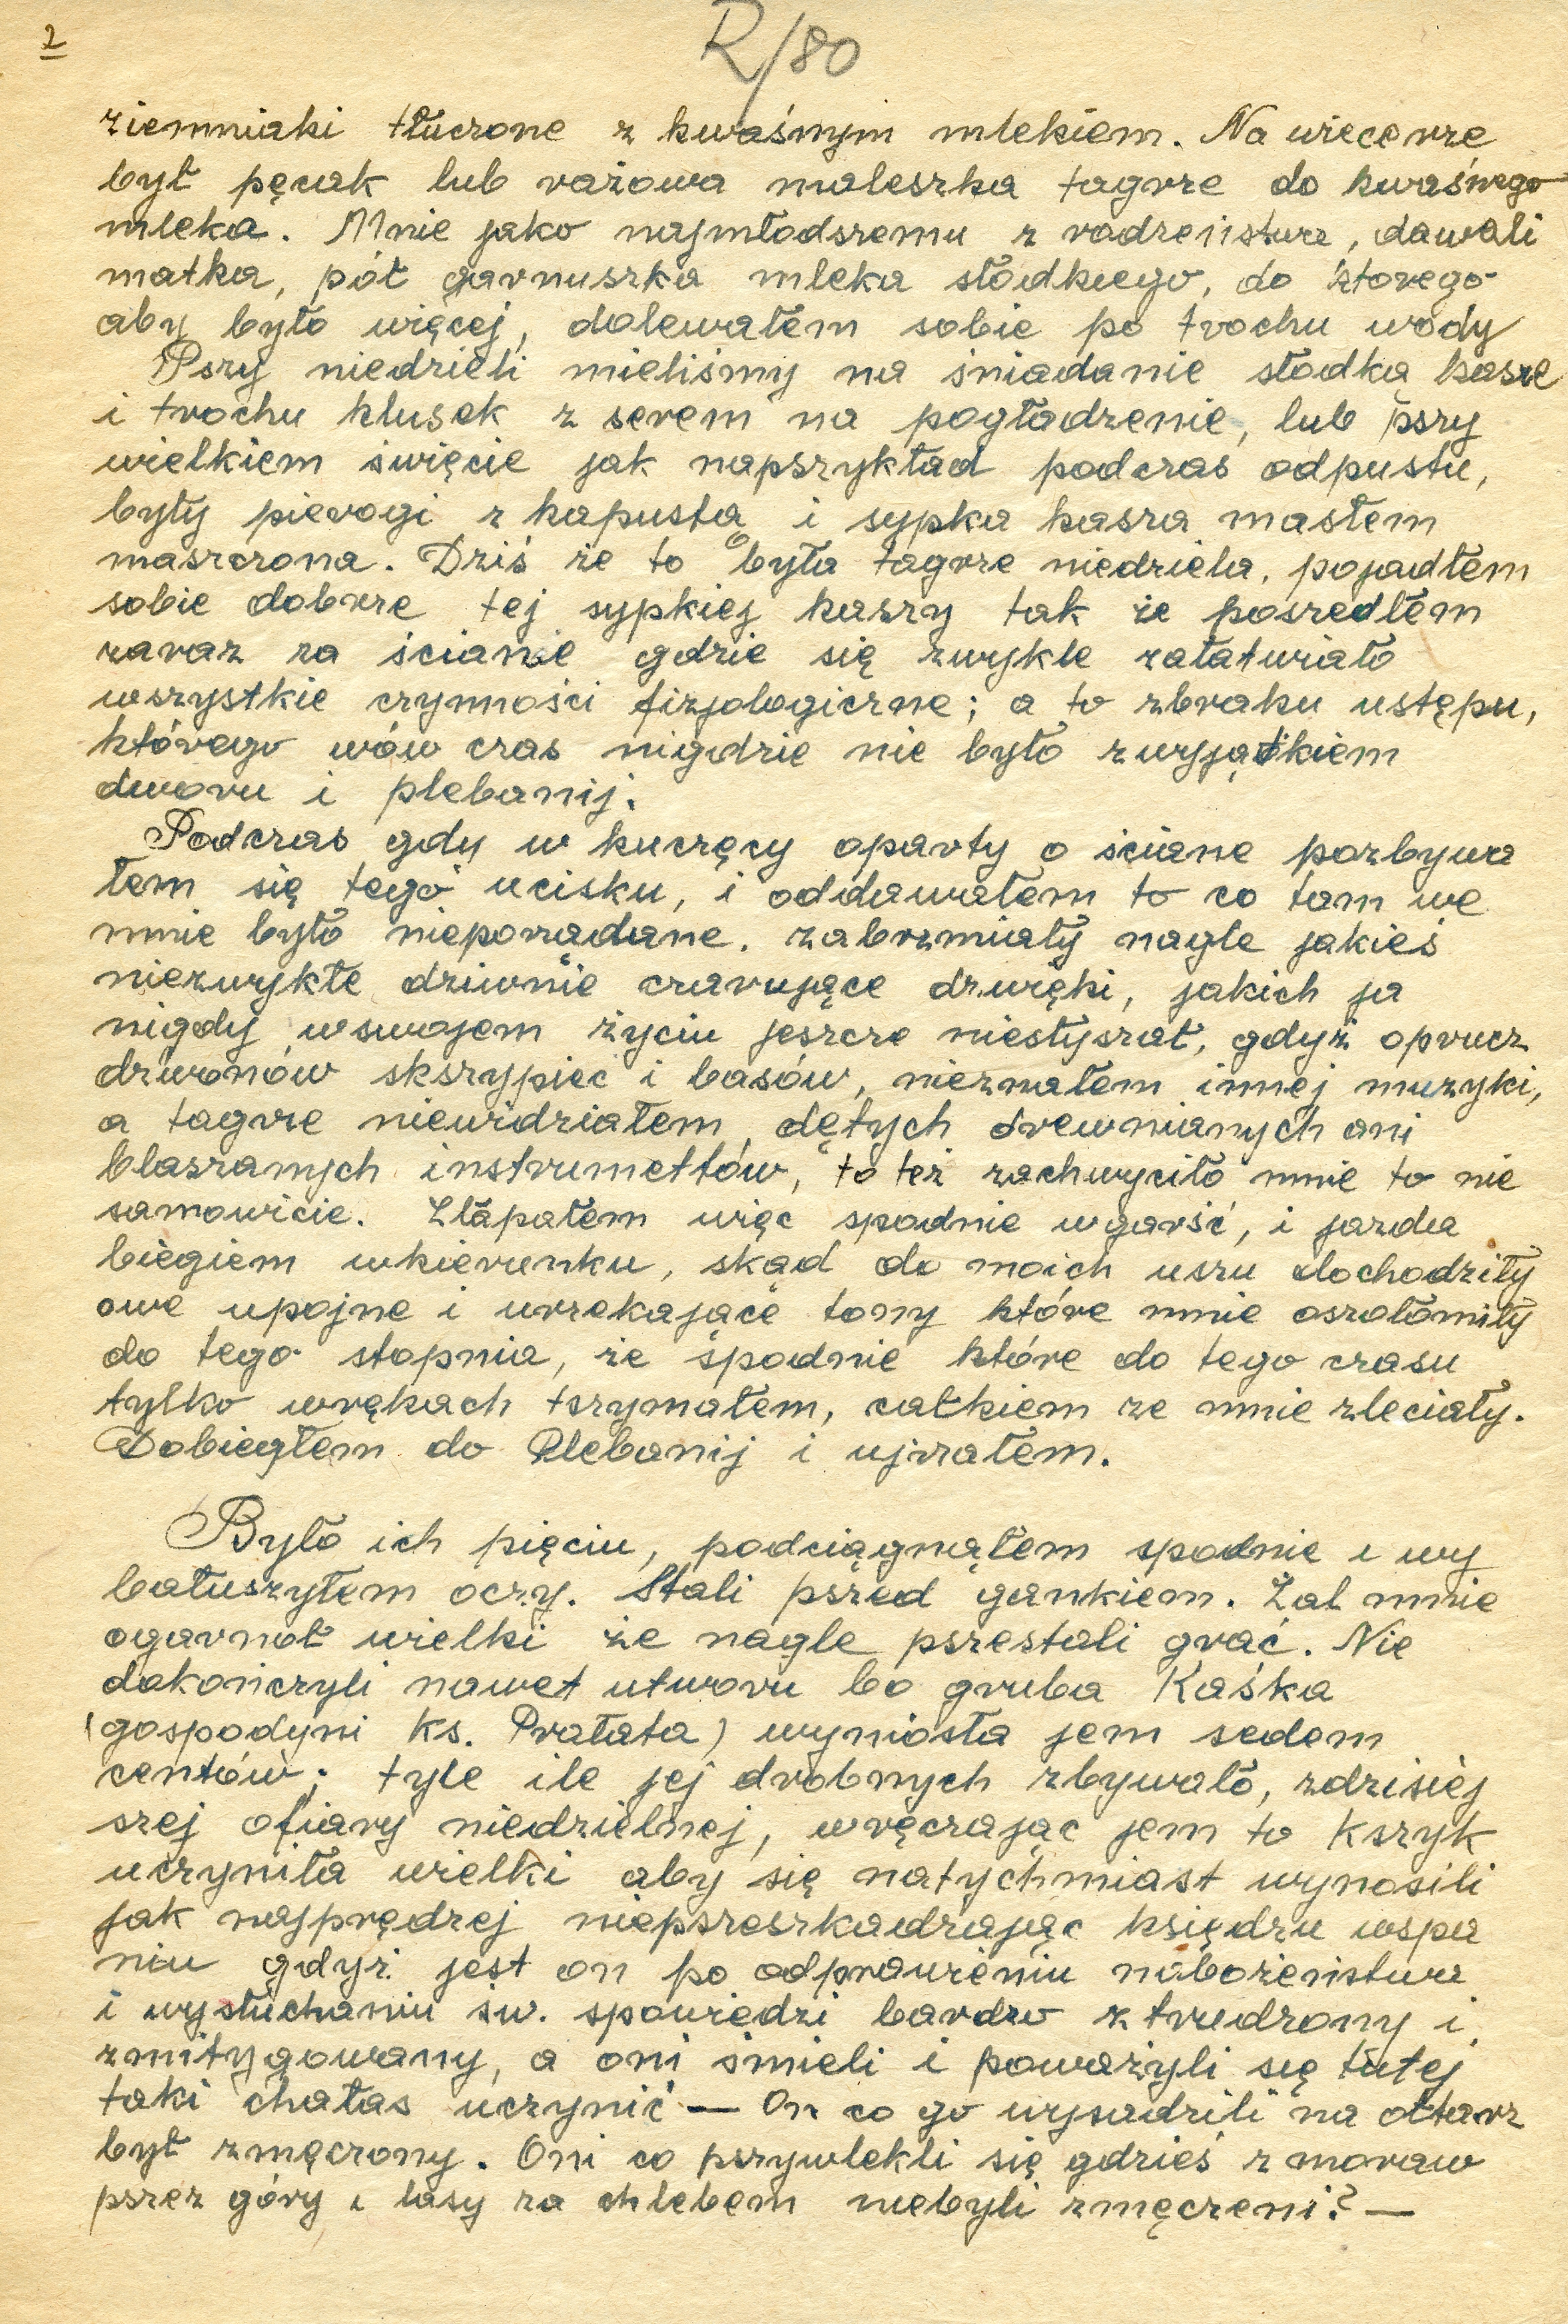 2
R/80
ziemniaki tłuczone z kwaśnym mlekiem. Na wiecerze
był pęcak lub razowa maleszka tagrze do kwaśnego
mleka. Mnie jako najmłodszemu z rodzeństwa, dawali
matka, pół garnuszka mleka słodkiego, do ktorego
aby było więcej, dolewałem sobie po trochu wody
Pszy niedzieli mieliśmy na śniadanie słodką kasze
i trochu klusek z serem na pogładzenie, lub pszy
wielkiem święcie jak napszykład podczas odpustu,
były pierogi z kapustą i sypka kasza masłem
maszczona. Dziś że to była tagrze niedziela, pojadłem
sobie dobrze tej sypkiej kaszy tak że poszedłem
zaraz za ścianie gdzie się zwykle załatwiało
wszystkie czynności fizjologiczne; a to zbraku ustępu,
którego wów czas nigdzie nie było zwyjątkiem
dworu i plebanij.
Podczas gdy w kuczęcy oparty o ściane pozbywa
łem się tego ucisku, i oddawałem to co tam we
mnie było nieporządane. zabrzmiały nagle jakieś
niezwykłe dziwnie czarujące dzwęki, jakich ja
nigdy wswojem życiu jeszcze niesłyszał, gdyż oprucz
dzwonów skszypiec i basów, nieznałem innej muzyki,
a tagrze niewidziałem dętych drewnianych ani
blaszanych instrumettów, to też zachwyciło mnie to nie
samowicie. Złapałem więc spodnie wgarść, i jazda
biegiem wkierunku, skąd do moich uszu dochodziły
owe upojne i urzekające tony które mnie oszołomiły
do tego stopnia, że spodnie które do tego czasu
tylko wrękach tszymałem, całkiem ze mnie zleciały.
Dobiegłem do Plebanij i ujrzałem.
Było ich pięciu, podciągnąłem spodnie i wy
bałuszyłem oczy. Stali pszed gankiem. Żal mnie
ogarnoł wielki że nagle pszestali grać. Nie
dokończyli nawet utworu bo gruba Kaśka
(gospodyni ks. Prałata) wyniosła jem sedem
centów; tyle ile jej drobnych zbywało, zdzisiej
szej ofiary niedzielnej, wręczając jem to kszyk
uczyniła wielki aby się natychmiast wynosili
jak najprędzej niepszeszkadzając księdzu wspa
niu gdyż jest on po odprawieniu nabożeństwa
i wysłuchaniu św. spowiedzi bardzo ztrudzony i
zmitygowany, a oni śmieli i poważyli się tutej
taki chałas uczynić — On co go wysadzili na ołtarz
był zmęczony. Oni co pszywlekli się gdzieś z moraw
pszez góry i lasy za chlebem niebyli zmęczeni? —